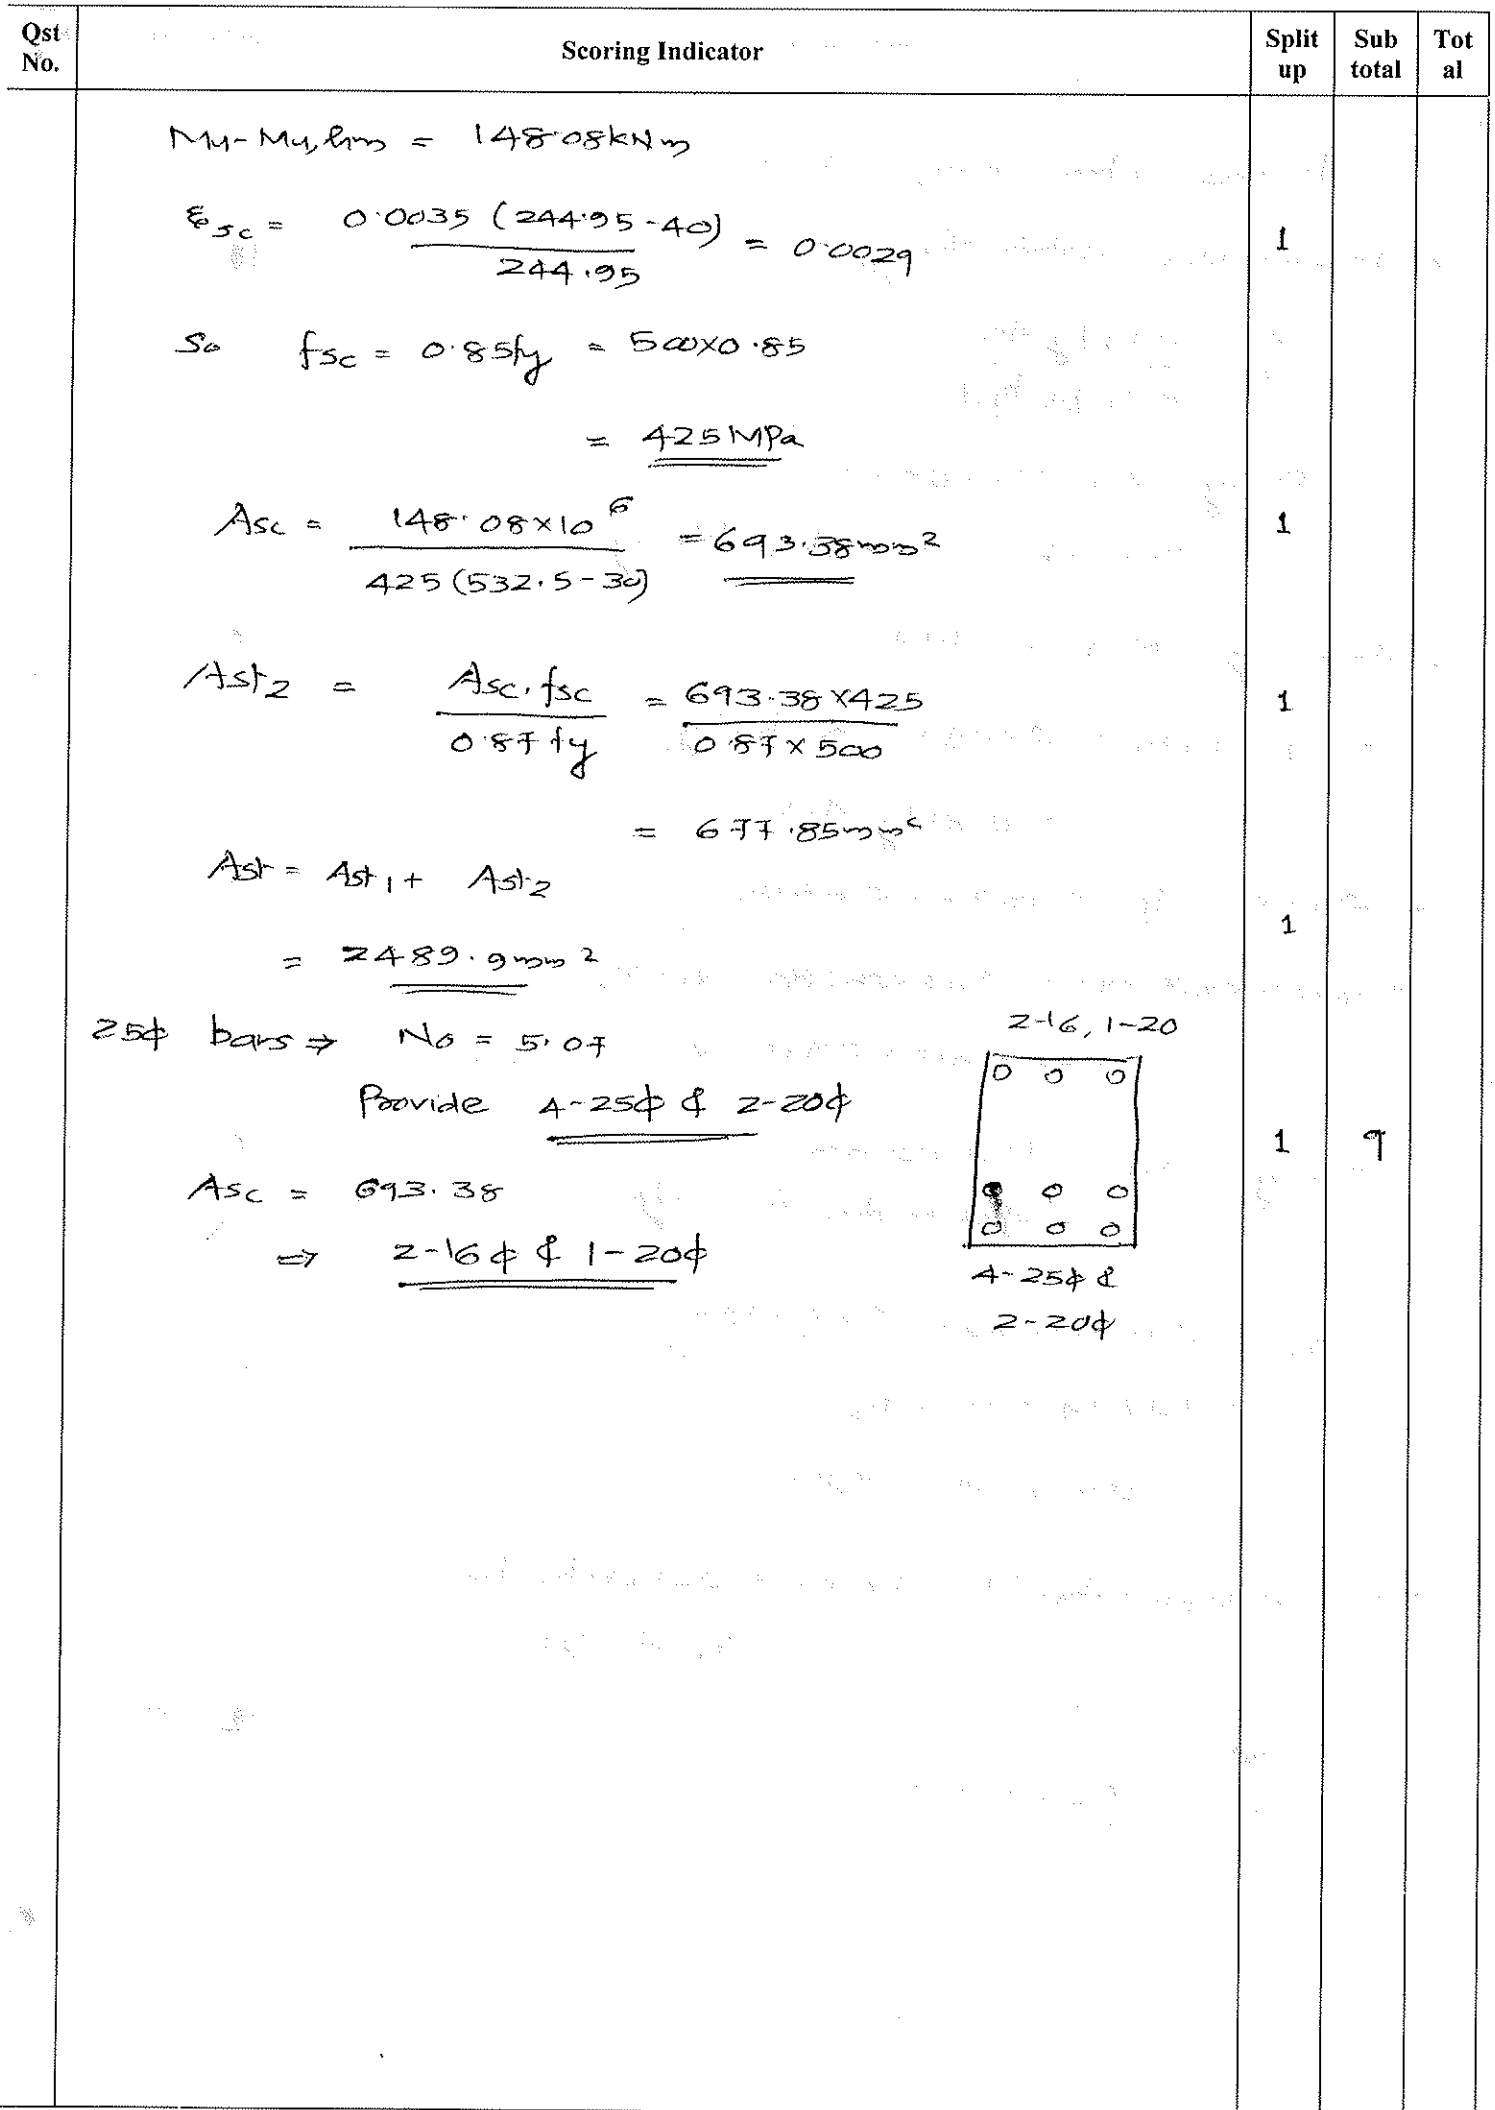 Qst No.
Scoring Indicator
Split up
Sub total
Tot al
Mu - Mu,lim = 148.08kNm
εsc = 0.0035 (244.95-40) / 244.95 = 0.0029
1
So fsc = 0.85fy = 500×0.85
= 425MPa
Asc = 148.08×10^6 / 425(532.5-30) = 693.38mm²
1
Ast2 = Asc.fsc / 0.87fy = 693.38×425 / 0.87×500
1
= 677.85mm²
Ast = Ast1 + Ast2
1
= 2489.9mm²
25ϕ bars ⇒ No = 5.07
2-16, 1-20
Provide 4-25ϕ & 2-20ϕ
1
9
Asc = 693.38
⇒ 2-16ϕ & 1-20ϕ
4-25ϕ &
2-20ϕ